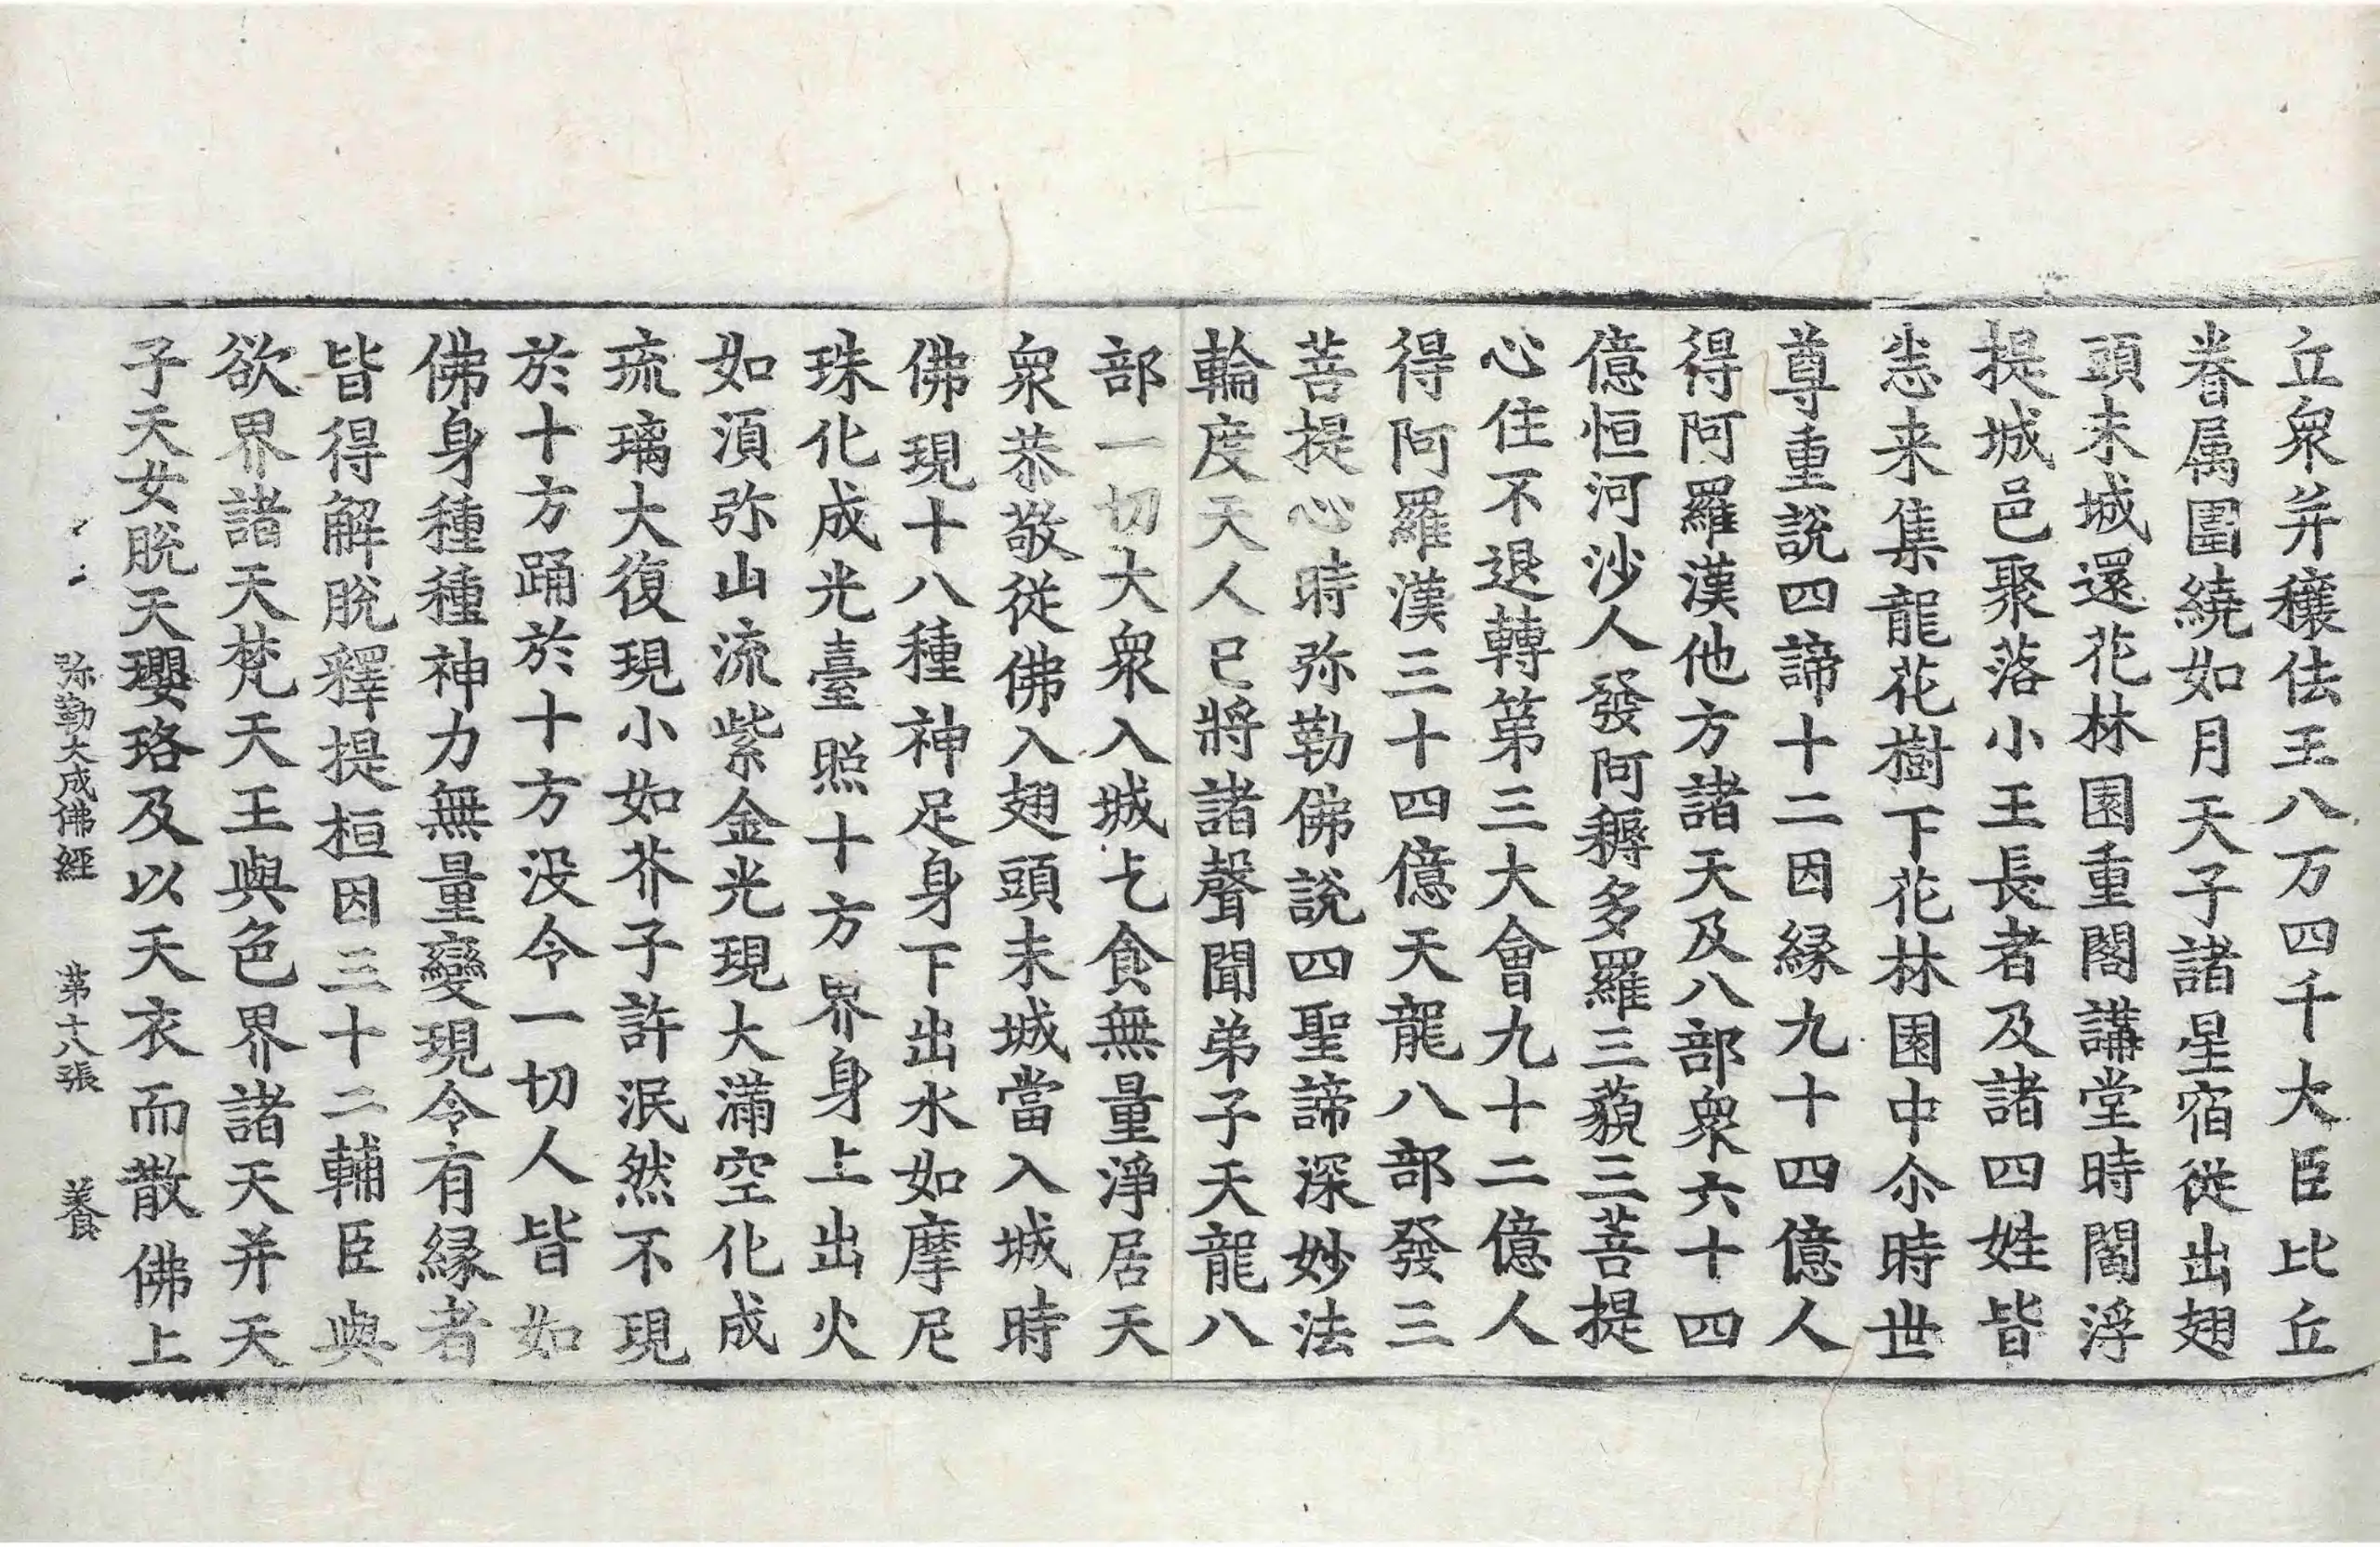 丘衆并穰佉王八万四千大臣比丘
眷属圍繞如月天子諸星宿從出翅
頭末城還花林園重閣講堂時閻浮
提城邑聚落小王長者及諸四姓皆
悉来集龍花樹下花林園中尒時世
尊重說四諦十二因緣九十四億人
得阿羅漢他方諸天及八部衆六十四
億恒河沙人發阿耨多羅三藐三菩提
心住不退轉第三大會九十二億人
得阿羅漢三十四億天龍八部發三
菩提心時弥勒佛說四聖諦深妙法
輪度天人已將諸聲聞弟子天龍八
部一切大衆入城乞食無量淨居天
衆恭敬從佛入翅頭末城當入城時
佛現十八種神足身下出水如摩尼
珠化成光臺照十方界身上出火
如湏弥山流紫金光現大滿空化成
琉璃大復現小如芥子許泯然不現
於十方踊於十方没令一切人皆如
佛身種種神力無量變現令有緣者
皆得解脫釋提桓因三十二輔臣與
欲界諸天梵天王與色界諸天并天
子天女脫天瓔珞及以天衣而散佛上
弥勒大成佛經 第十八張 養